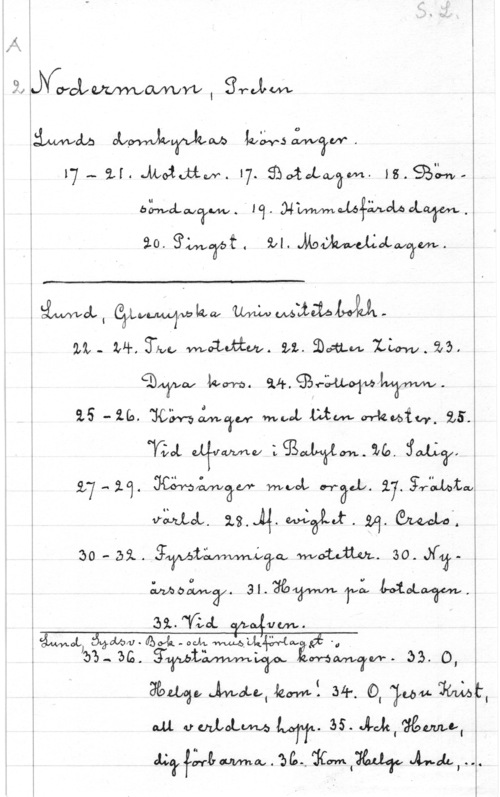 S. L.
A
2 Nodermann, Preben
Lunds domkyrkas körsånger.
17 - 21. Motetter. 17. Botdagen. 18. Bön-
söndagen. 19. Himmelsfärdsdagen.
20. Pingst. 21. Mikaelidagen.
Lund, Gleerupska Universitetsbokh.
22 - 24. Tre motetter. 22. Dotter Zion. 23.
Dyra kors. 24. Bröllopshymn.
25 - 26. Körsånger med liten orkester. 25.
Vid elfvarne i Babylon. 26. Salig.
27 - 29. Körsånger med orgel. 27. Frälsta
värld. 28. Af. evighet. 29. Credo.
30 - 32. Fyrstämmiga motetter. 30. Ny-
årssång. 31. Hymn på botdagen.
32. Vid grafven.
Lund, Sydsv. Bok- och musikförlaget.
33 - 36. Fyrstämmiga körsånger. 33. O,
Helge Ande, kom! 34. O, Jesu Krist,
all verldens hopp. 35. Ack, Herre,
dig förbarma. 36. Kom, Helge Ande, ...